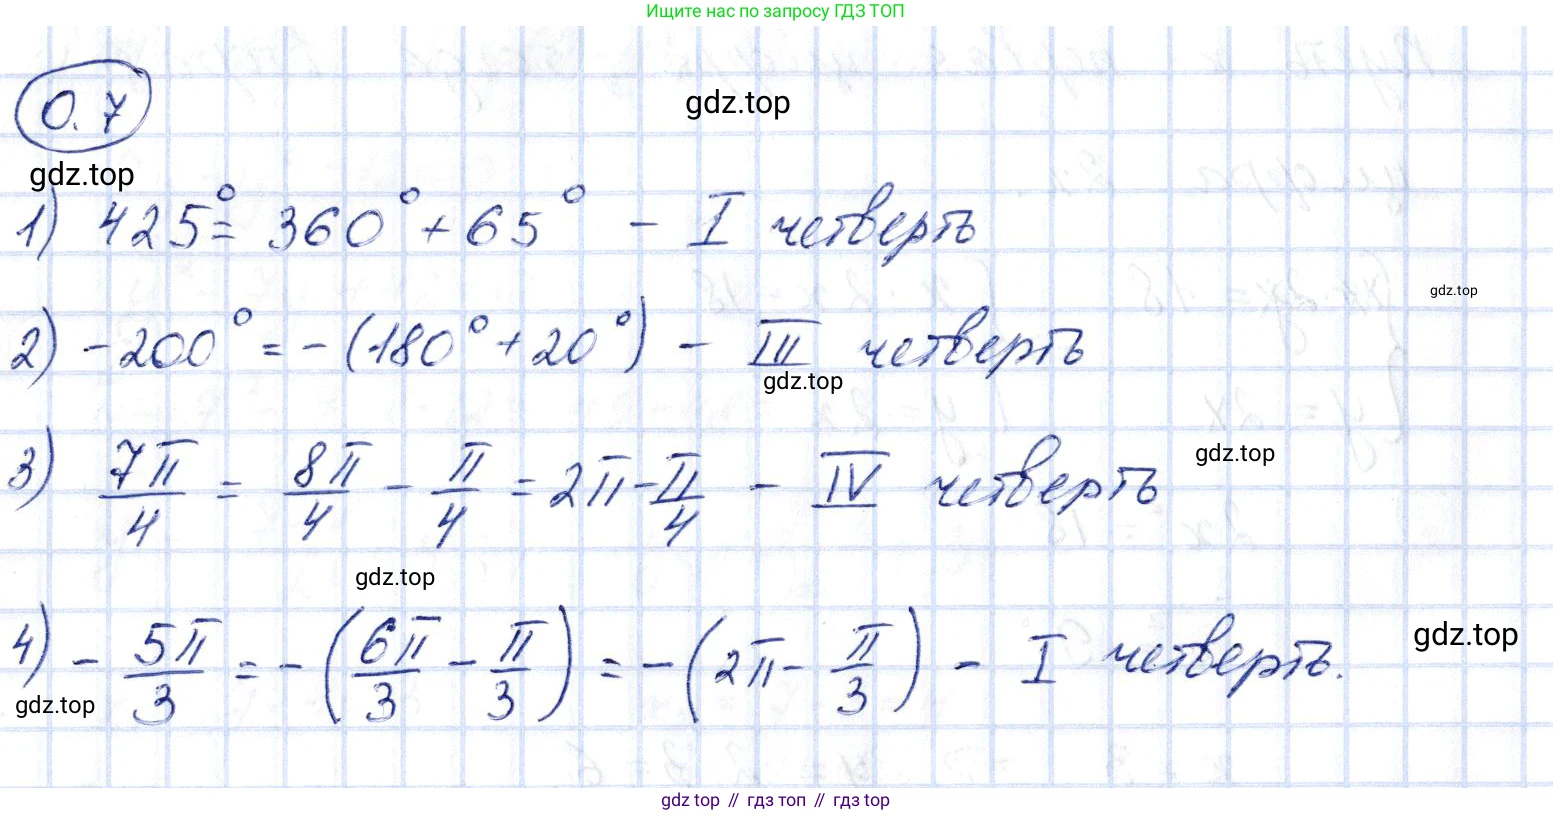 Ищите нас по запросу ГДЗ ТОП
0.7
gdz.top
gdz.top
1) 425° = 360° + 65° – I четверть
gdz.top
2) –200° = –(180° + 20°) – III четверть
gdz.top
gdz.top
3) 7π/4 = 8π/4 – π/4 = 2π – π/4 – IV четверть
gdz.top
4) – 5π/3 = –(6π/3 – π/3) = –(2π – π/3) – I четверть.
gdz.top
gdz.top
gdz top // гдз топ // гдз top